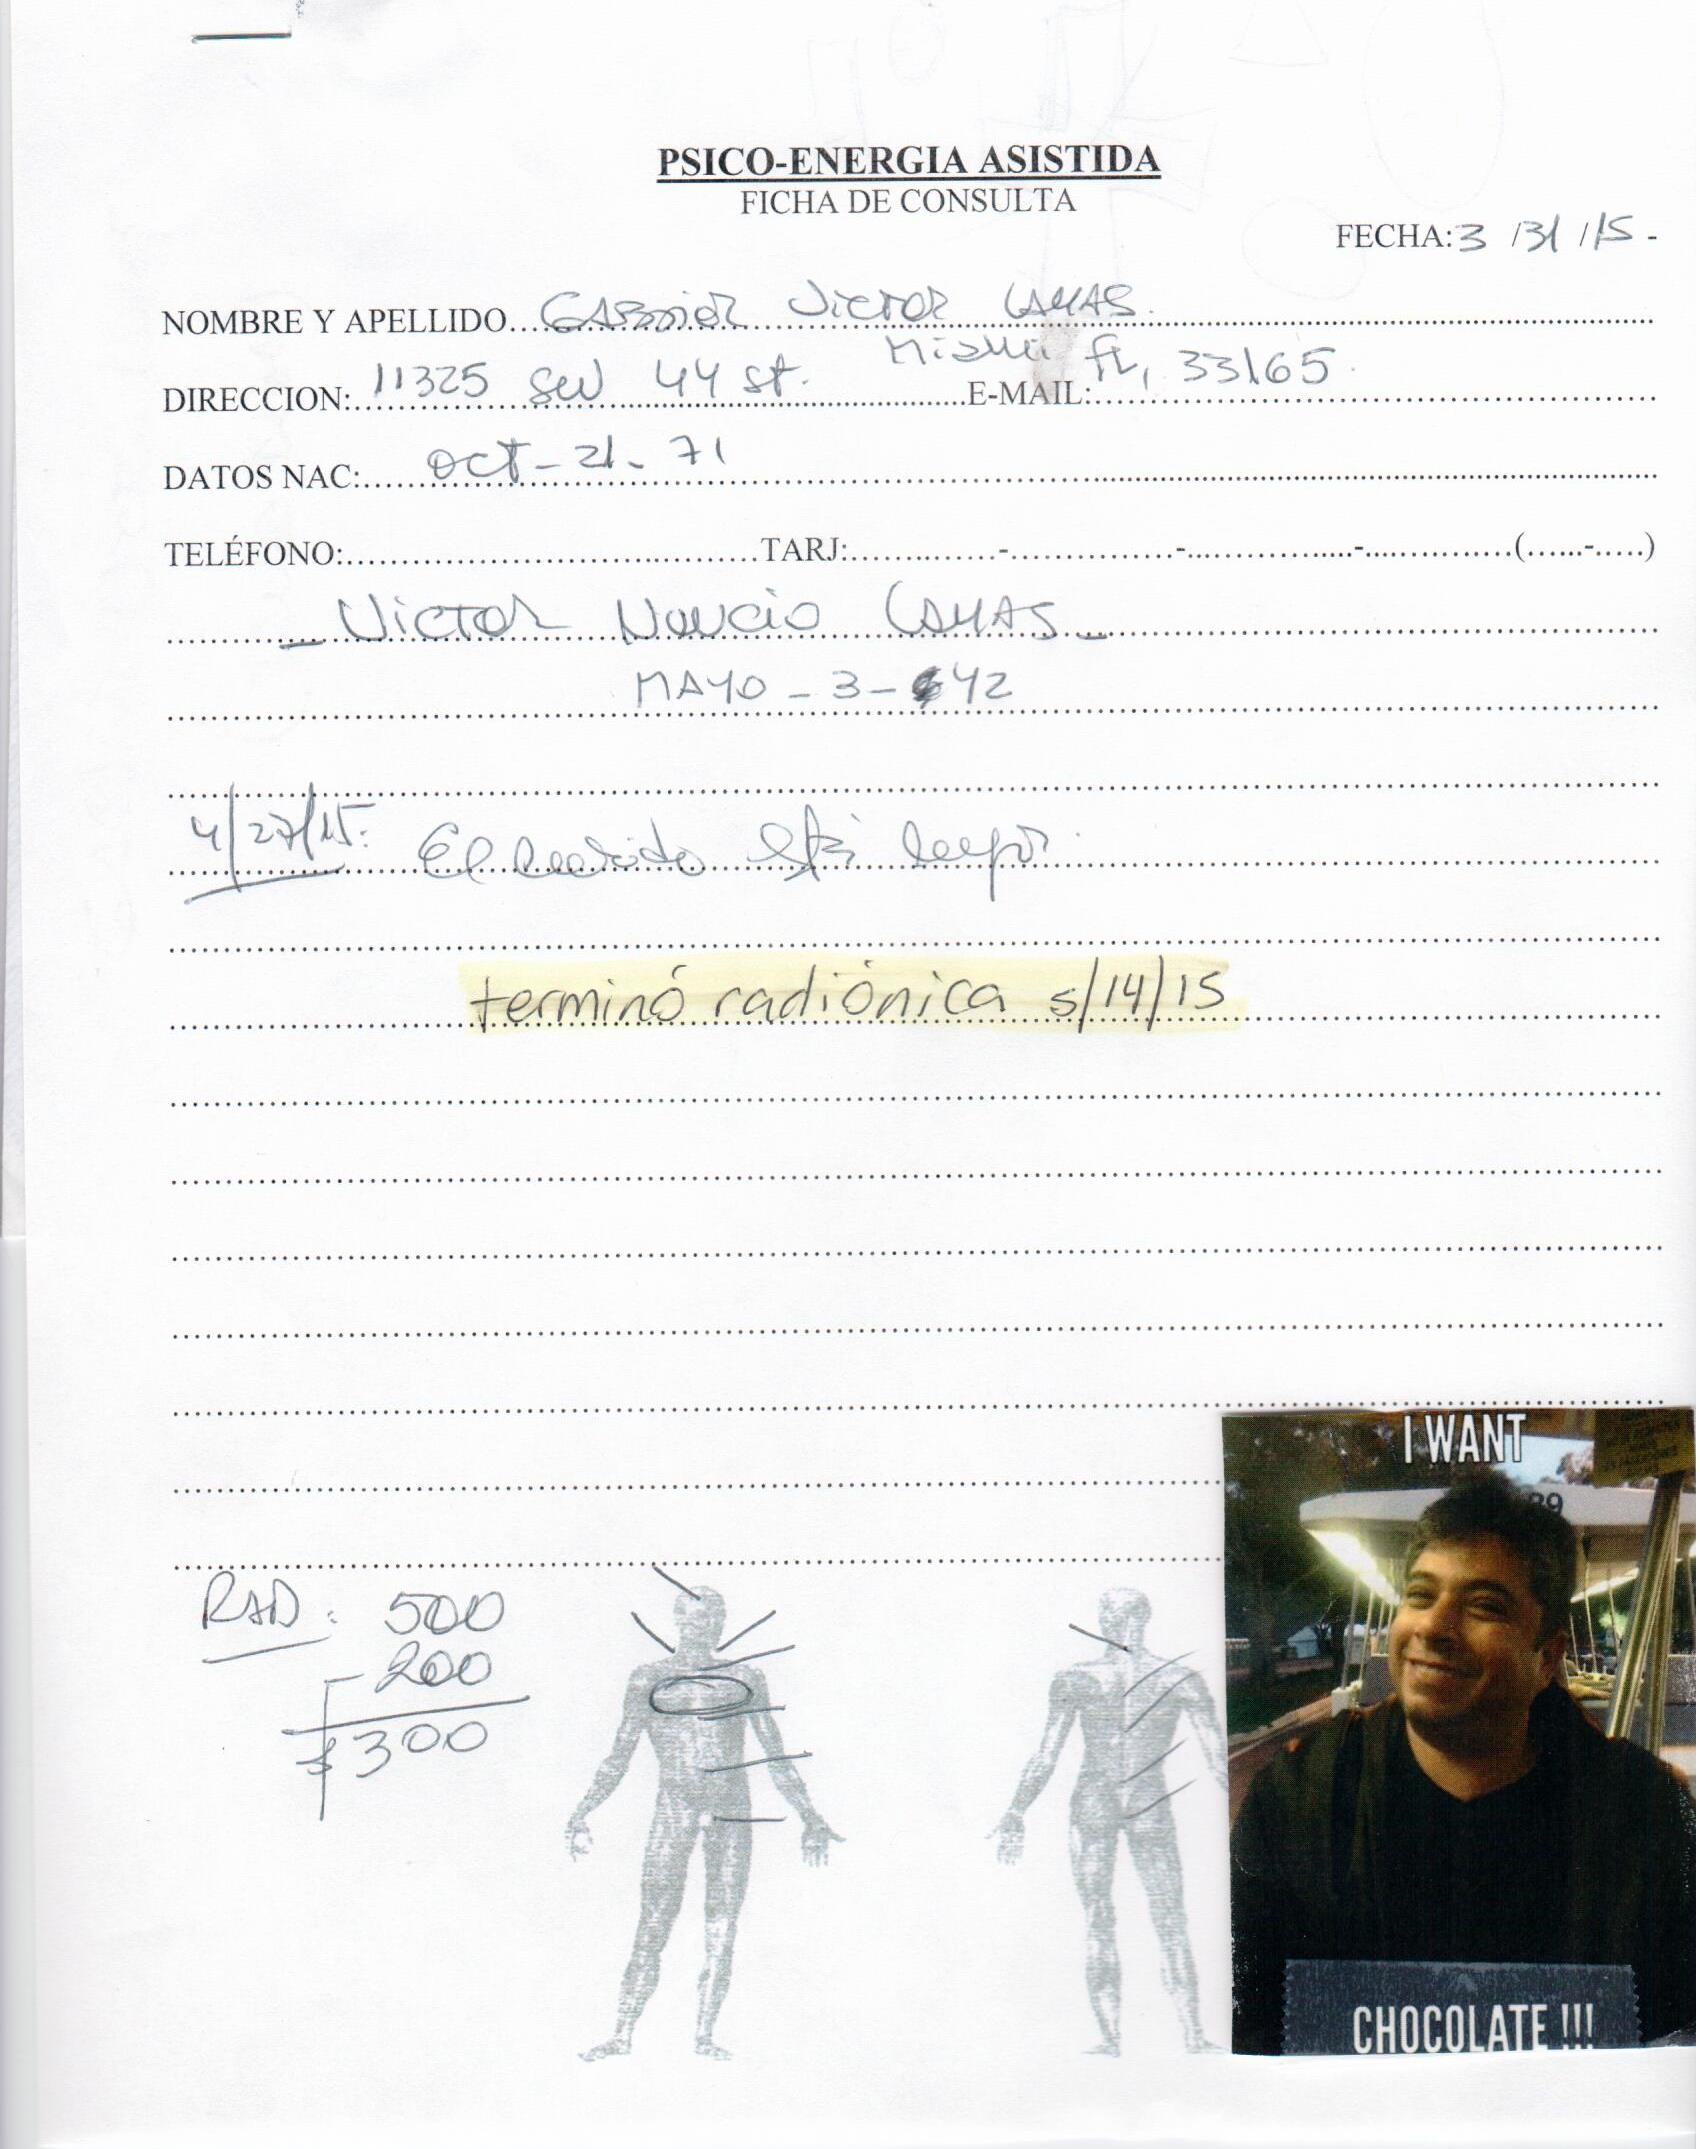 PSICO-ENERGIA ASISTIDA
FICHA DE CONSULTA
FECHA: 3 /31 /15 -
NOMBRE Y APELLIDO Gabriel Victor Lamas.
DIRECCION: 11325 SW 44 st. Miami FL, 33165. E-MAIL:
DATOS NAC: Oct - 21 - 71
TELÉFONO: TARJ: - - - ( - )
- Victor Nuncio Lamas -
MAYO - 3 - 42
4/27/15: El marido está mejor.
terminó radiónica 5/14/15
RAD: 500
- 200
$300
I WANT
89
CHOCOLATE !!!